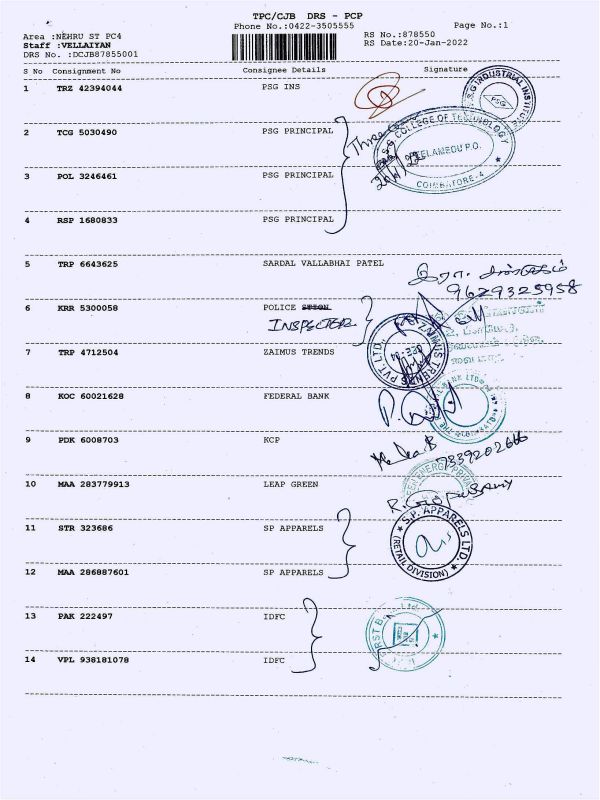 TPC/CJB DRS - PCP
Phone No.:0422-3505555 Page No.:1
Area :NEHRU ST PC4 RS No.:878550
Staff :VELLAIYAN RS Date:20-Jan-2022
DRS No. :DCJB87855001
S No Consignment No Consignee Details Signature
1 TRZ 42394044 PSG INS
P.S.G INDUSTRIAL INSTITUTE
PSG
2 TCG 5030490 PSG PRINCIPAL
Three
P.S.G COLLEGE OF TECHNOLOGY
PEELAMEDU P.O.
COIMBATORE-4
3 POL 3246461 PSG PRINCIPAL
4 RSP 1680833 PSG PRINCIPAL
5 TRP 6643625 SARDAL VALLABHAI PATEL
9629325958
6 KRR 5300058 POLICE
INSPECTER
7 TRP 4712504 ZAIMUS TRENDS
ZAIMUS TRENDS PVT. LTD.
8 KOC 60021628 FEDERAL BANK
9 PDK 6008703 KCP
7339202666
10 MAA 283779913 LEAP GREEN
R. Gopalsamy
11 STR 323686 SP APPARELS
S.P. APPARELS LTD.
(RETAIL DIVISION)
12 MAA 286887601 SP APPARELS
13 PAK 222497 IDFC
14 VPL 938181078 IDFC